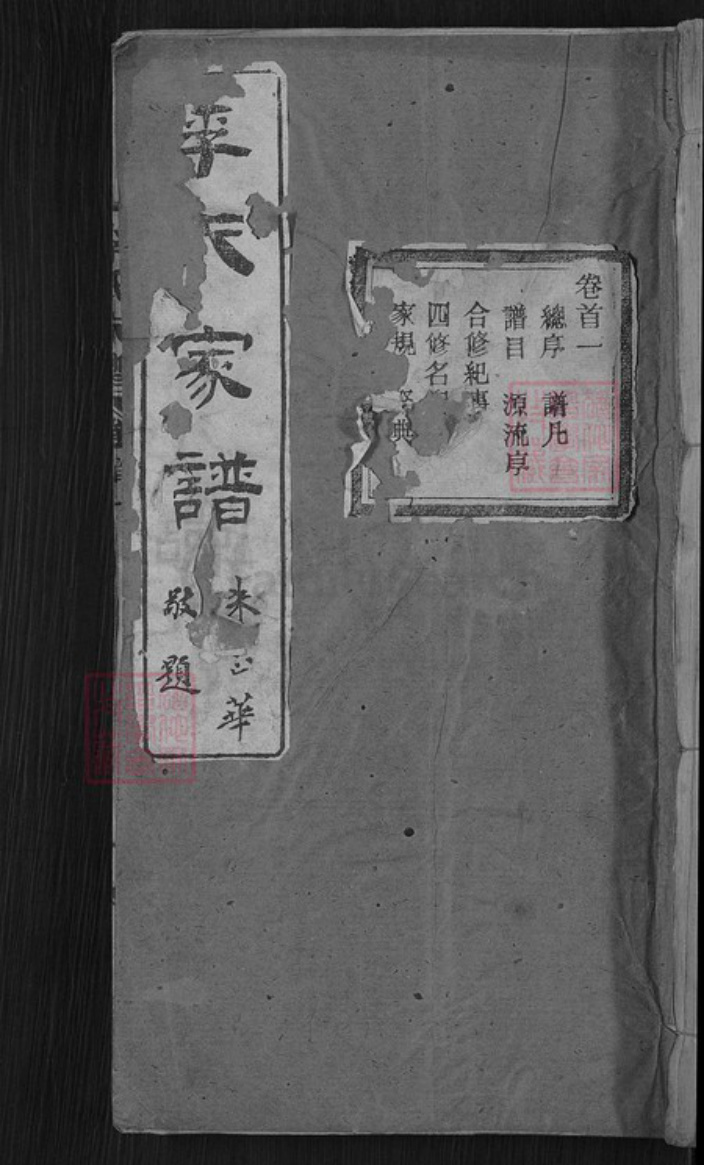 卷首一
總序 譜凡
譜目 源流序
合修紀事
四修名
家規 典
氏家譜
朱 華
敬題